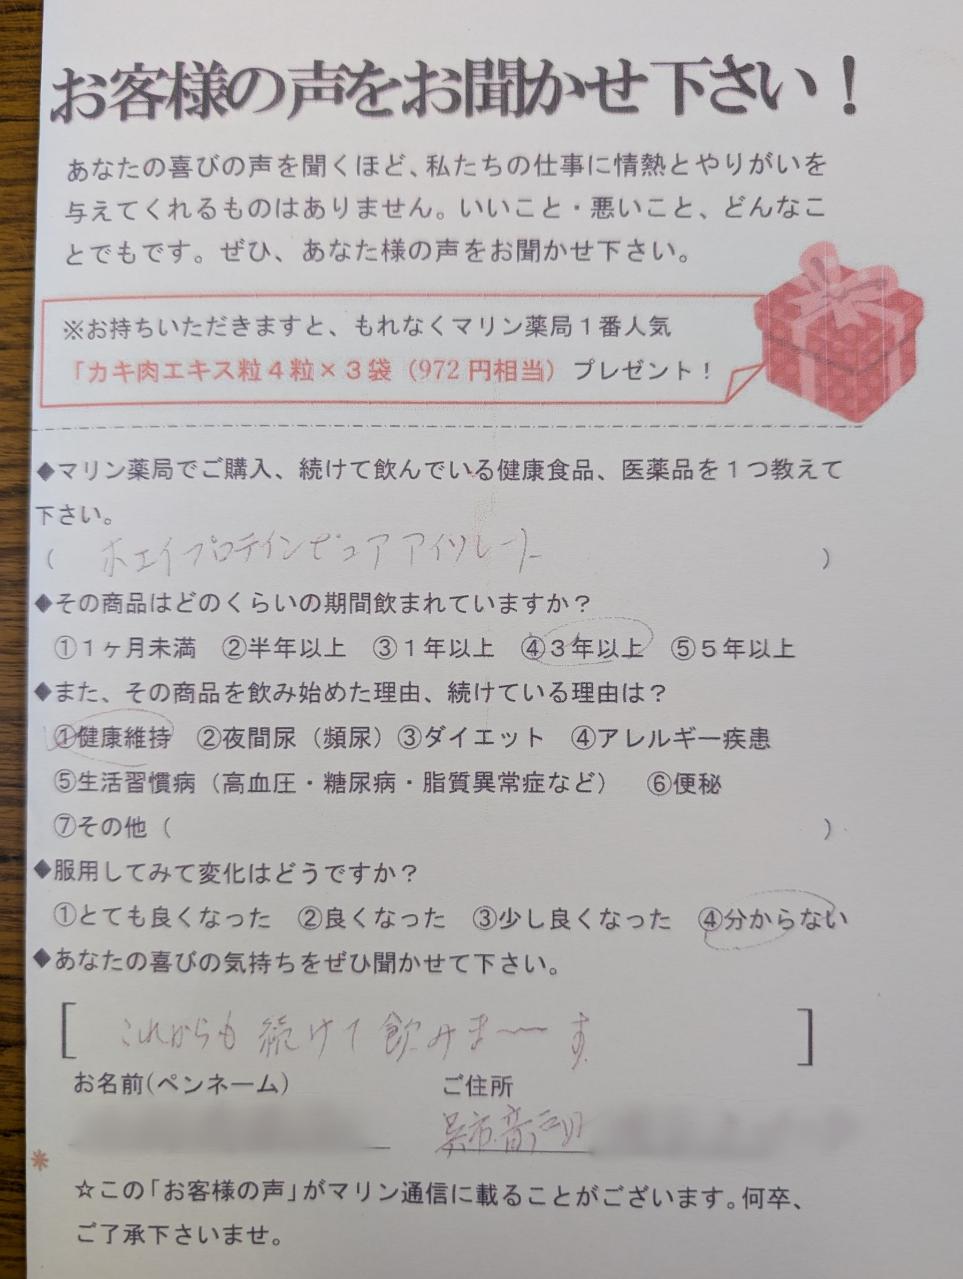 お客様の声をお聞かせ下さい！
あなたの喜びの声を聞くほど、私たちの仕事に情熱とやりがいを
与えてくれるものはありません。いいこと・悪いこと、どんなこ
とでもです。ぜひ、あなた様の声をお聞かせ下さい。
※お持ちいただきますと、もれなくマリン薬局１番人気
「カキ肉エキス粒４粒×３袋（972 円相当）プレゼント！
◆マリン薬局でご購入、続けて飲んでいる健康食品、医薬品を１つ教えて
下さい。
（ ホエイプロテインピュアアイソレート ）
◆その商品はどのくらいの期間飲まれていますか？
①１ヶ月未満 ②半年以上 ③１年以上 ④３年以上 ⑤５年以上
◆また、その商品を飲み始めた理由、続けている理由は？
①健康維持 ②夜間尿（頻尿）③ダイエット ④アレルギー疾患
⑤生活習慣病（高血圧・糖尿病・脂質異常症など） ⑥便秘
⑦その他（ ）
◆服用してみて変化はどうですか？
①とても良くなった ②良くなった ③少し良くなった ④分からない
◆あなたの喜びの気持ちをぜひ聞かせて下さい。
[ これからも続けて飲みま〜〜す ]
お名前(ペンネーム) ご住所
呉市音戸町
☆この「お客様の声」がマリン通信に載ることがございます。何卒、
ご了承下さいませ。